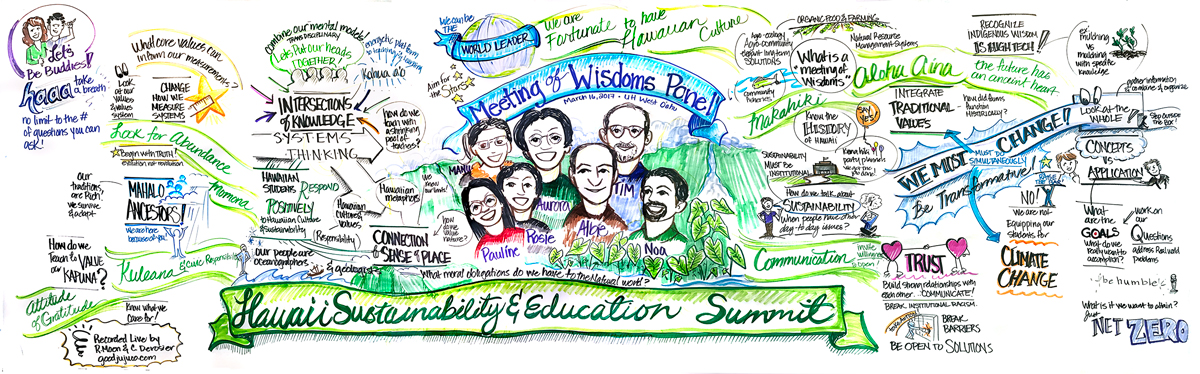 Let's
Be Buddies!!
haaa
take
a breath
no limit to the #
of questions you can
ask!
What core values can
inform our measurements?
Look
at our
values
system
CHANGE
HOW WE
MEASURE
SYSTEMS
Look for Abundance
Begin with TRUTH!
Our
traditions
are Rich!
we survive
& adapt
MAHALO
ANCESTORS!
We are here
because of you!
Mamona
How do we
Teach & VALUE
our KAPUNA?
Kuleana & Civic Responsibility
Attitude
of Gratitude
Know what we
care for!
Recorded Live by
R Moen & C Derosier
goodjujuco.com
combine our mental models
TRANSDISCIPLINARY
Let's Put our heads
TOGETHER
INTERSECTIONS
of KNOWLEDGE
SYSTEMS
THINKING
HAWAIIAN
STUDENTS RESPOND
POSITIVELY
to Hawaiian Culture
& Sustainability
Responsibility
our people are
oceanographers
& geologists
Hawaiian
metaphors
Hawaiian
Culture &
Values
CONNECTION
& SENSE of PLACE
how do we
team with
a shrinking
pool of
teachers?
We can be
the
WORLD LEADER
Aim for
the Stars
We are
Fortunate to have
Hawaiian Culture
Meeting of Wisdoms Panel
March 16, 2017 • UH West Oahu
We
know our land!
how
do we
value
nature?
Manu
Aurora
Tim
Pauline
Rosie
Albie
Noa
What moral obligations do we have to the Natural World?
Hawaii Sustainability & Education Summit
ORGANIC FOOD & FARMING
Natural Resource
Management Systems
Agro-ecology
Agro-community
adaptive long-term
SOLUTIONS
community
fisheries
What is a
"meeting of
wisdoms"
Makahiki
Know the
HISTORY
of HAWAII
SAY
YES!
SUSTAINABILITY
Must Be
INSTITUTIONAL
How do we talk about
SUSTAINABILITY
When people have other
day-to-day issues?
Communication
Aloha Aina
INTEGRATE
TRADITIONAL
VALUES
how did farms
function
HISTORICALLY?
RECOGNIZE
INDIGENOUS WISDOM
IS HIGH TECH!
the future has
an ancient heart
ex: mulching
vs
mulching
with specific
knowledge
WE MUST CHANGE!!
MUST DO
SIMULTANEOUSLY
Be Transformative!
TRUST
Build strong relationships with
each other. COMMUNICATE!
BREAK INSTITUTIONAL RACISM
BREAK
BARRIERS
BE OPEN to SOLUTIONS
NO!
we are not
equipping our
students for
CLIMATE
CHANGE
gather information
Look at the
WHOLE
Step outside
the Box!
CONCEPTS
vs
APPLICATION
What
are the
GOALS
what do we
really want to
accomplish?
work on
our
Questions
address Real world
problems
be humble
What is it we want to attain?
Just
NET ZERO